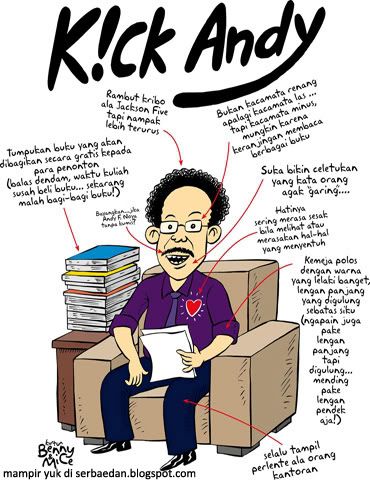 K!ck Andy
Rambut kribo
ala Jackson Five
tapi nampak
lebih terurus
Bukan kacamata renang
apalagi kacamata las ...
tapi kacamata minus,
mungkin karena
keranjingan membaca
berbagai buku
Tumpukan buku yang akan
dibagikan secara gratis kepada
para penonton
(balas dendam, waktu kuliah
susah beli buku... sekarang
malah bagi-bagi buku!)
Suka bikin celetukan
yang kata orang
agak "garing....
Bayangkan...jika
Andy F. Noya
tanpa kumis?
Hatinya
sering merasa sesak
bila melihat atau
merasakan hal-hal
yang menyentuh
Kemeja polos
dengan warna
yang lelaki banget,
lengan panjang
yang digulung
sebatas siku
(ngapain juga
pake
lengan
panjang
tapi
digulung...
mending
pake
lengan
pendek
aja!)
selalu tampil
perlente ala orang
kantoran
kartun
Benny
Mice
mampir yuk di serbaedan.blogspot.com